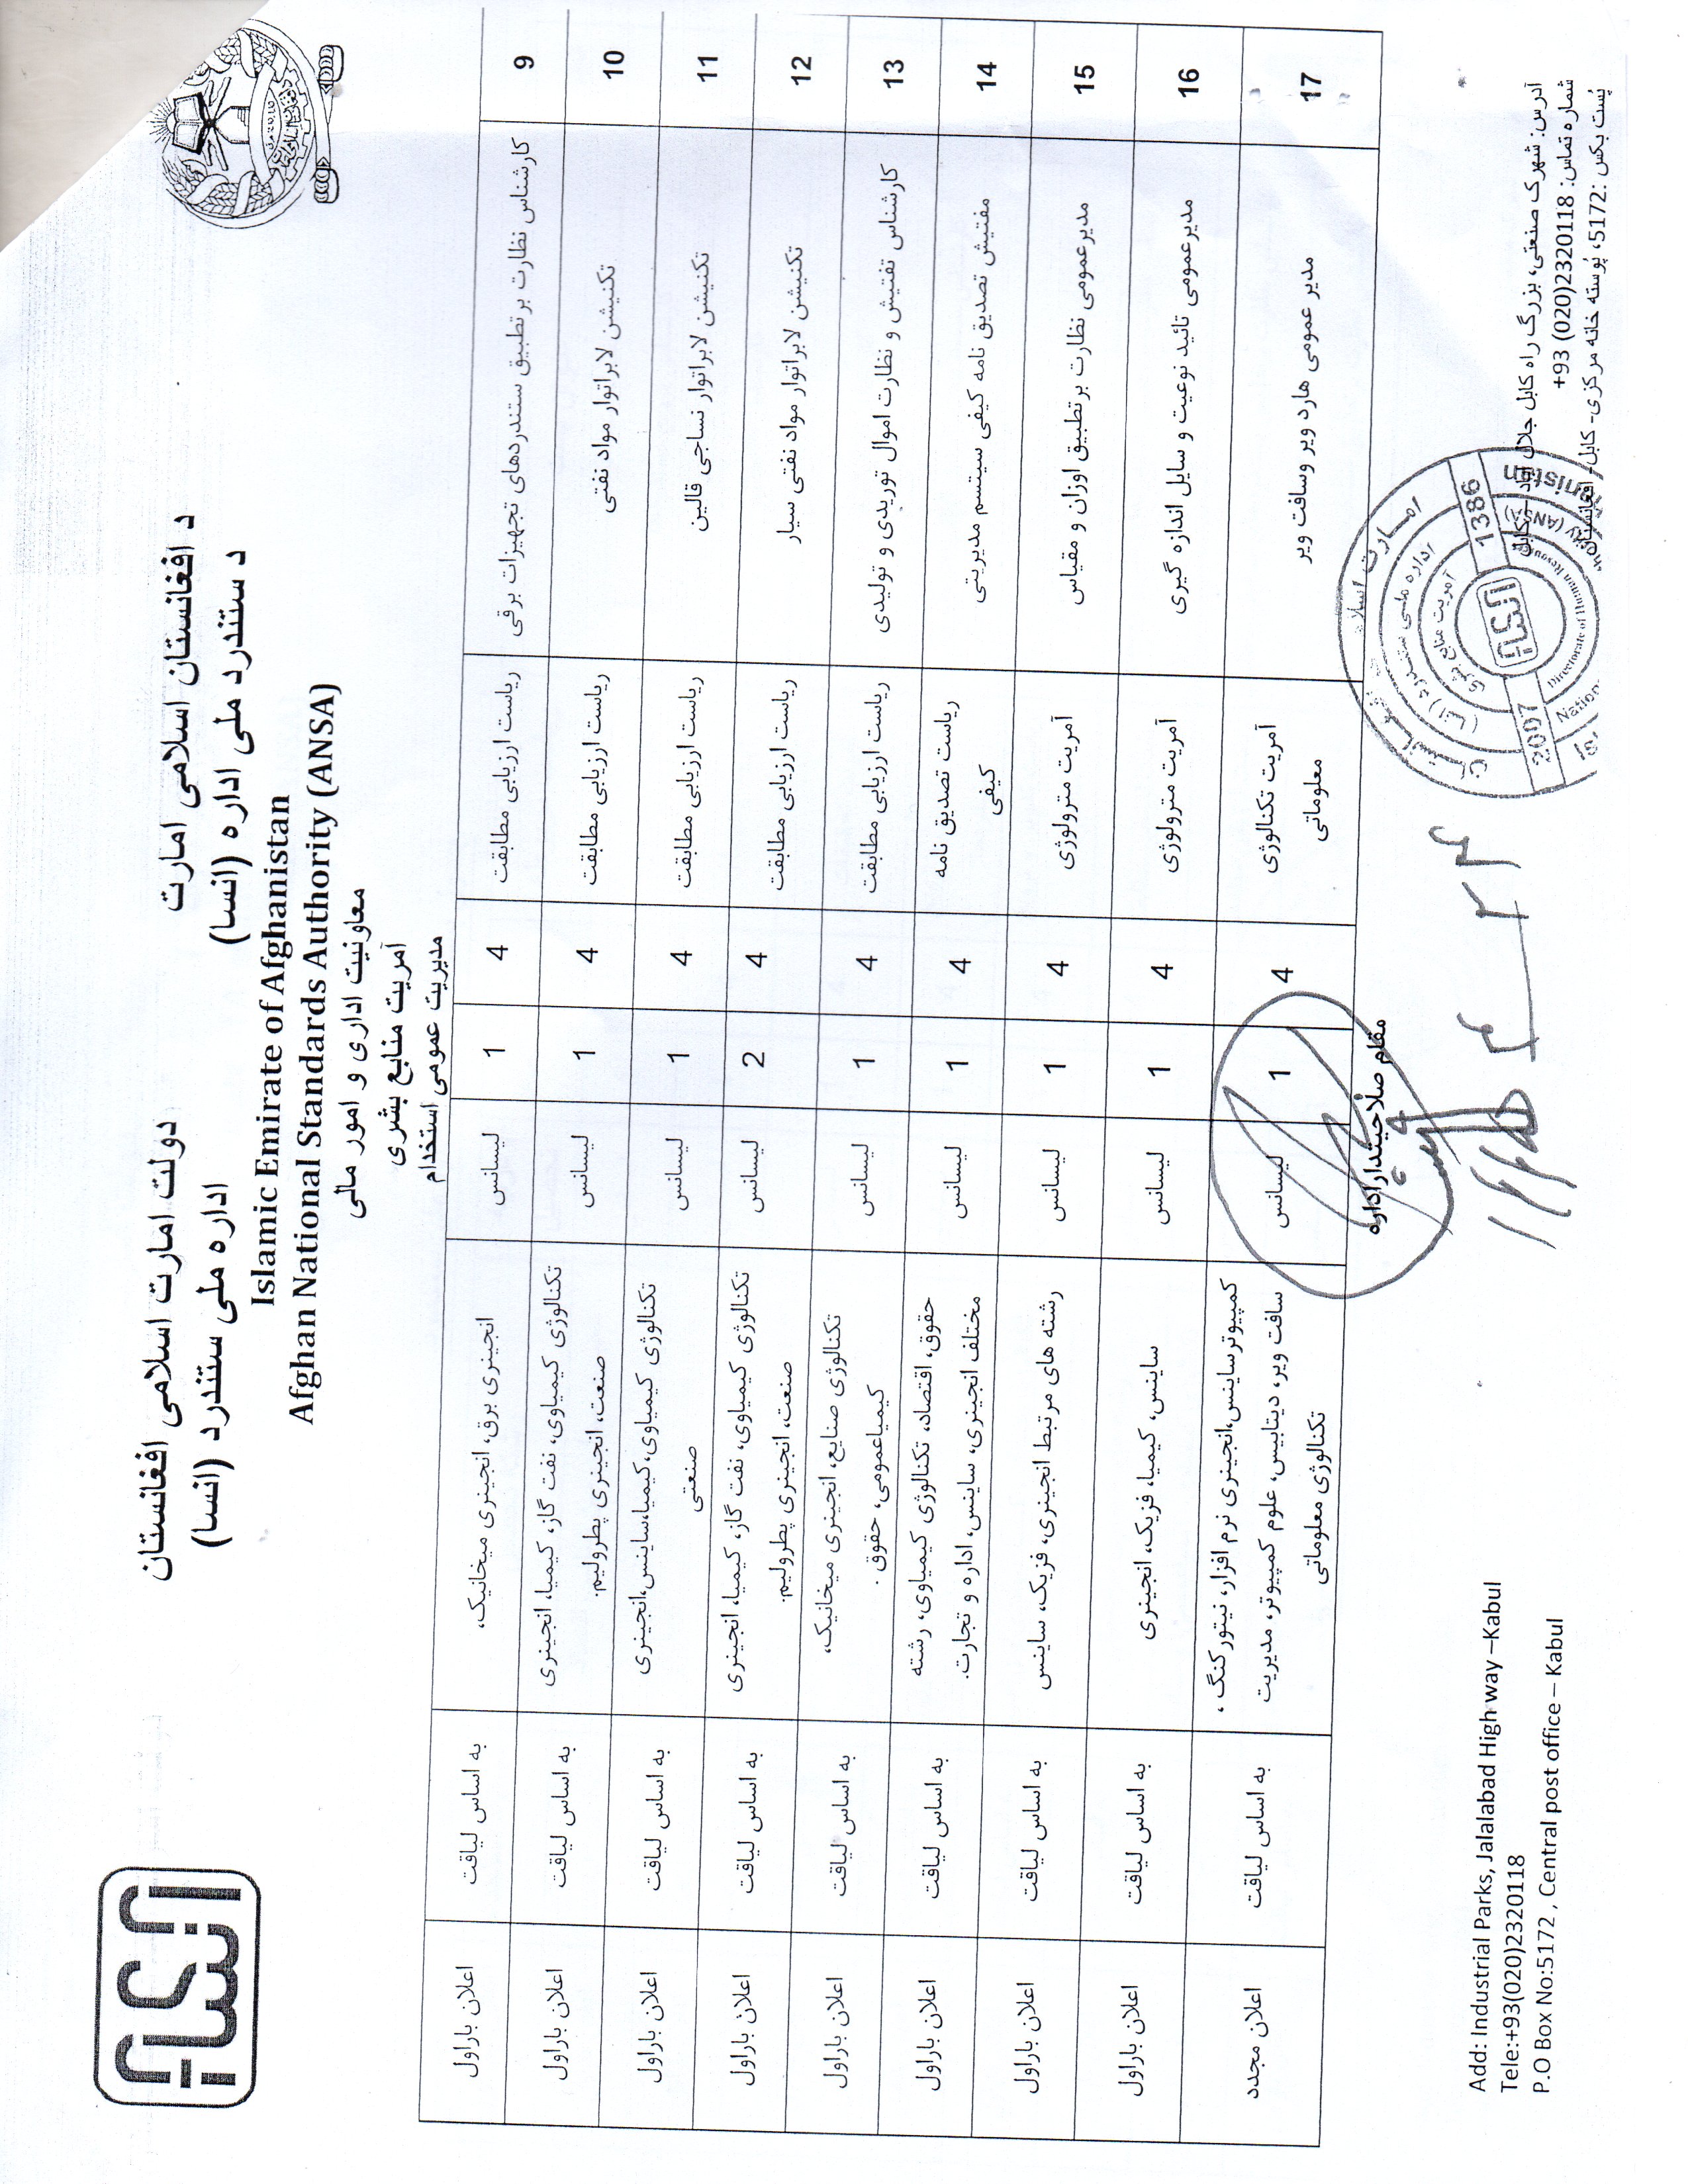 د افغانستان اسلامی امارت
د ستندرد ملی اداره (انسا)
دولت امارت اسلامی افغانستان
اداره ملی ستندرد (انسا)
Islamic Emirate of Afghanistan
Afghan National Standards Authority (ANSA)
معاونیت اداری و امور مالی
آمریت منابع بشری
مدیریت عمومی استخدام
9 کارشناس نظارت بر تطبیق ستندردهای تجهیزات برقی ریاست ارزیابی مطابقت 4 1 لیسانس انجینری برق، انجینری میخانیک، به اساس لیاقت اعلان باراول
10 تکنیشن لابراتوار مواد نفتی ریاست ارزیابی مطابقت 4 1 لیسانس تکنالوژی کیمیاوی، نفت گاز، کیمیا، انجینری به اساس لیاقت اعلان باراول
صنعت، انجینری پطرولیم.
11 تکنیشن لابراتوار نساجی قالین ریاست ارزیابی مطابقت 4 1 لیسانس تکنالوژی کیمیاوی،کیمیا،ساینس،انجینری به اساس لیاقت اعلان باراول
صنعتی
12 تکنیشن لابراتوار مواد نفتی سیار ریاست ارزیابی مطابقت 4 2 لیسانس تکنالوژی کیمیاوی، نفت گاز، کیمیا، انجینری به اساس لیاقت اعلان باراول
صنعت، انجینری پطرولیم.
13 کارشناس تفتیش و نظارت اموال توریدی و تولیدی ریاست ارزیابی مطابقت 4 1 لیسانس تکنالوژی صنایع، انجینری میخانیک، به اساس لیاقت اعلان باراول
کیمیاعمومی، حقوق .
14 مفتیش تصدیق نامه کیفی سیتسم مدیریتی ریاست تصدیق نامه 4 1 لیسانس حقوق، اقتصاد، تکنالوژی کیمیاوی، رشته به اساس لیاقت اعلان باراول
کیفی مختلف انجینری، ساینس، اداره و تجارت.
15 مدیرعمومی نظارت برتطبیق اوزان و مقیاس آمریت مترولوژی 4 1 لیسانس رشته های مرتبط انجینری، فزیک، ساینس به اساس لیاقت اعلان باراول
16 مدیرعمومی تائید نوعیت و سایل اندازه گیری آمریت مترولوژی 4 1 لیسانس ساینس، کیمیا، فزیک، انجینری به اساس لیاقت اعلان باراول
17 مدیر عمومی هارد ویر وسافت ویر آمریت تکنالوژی 4 1 لیسانس کمپیوترساینس،انجینری نرم افزار، نیتورکنگ ، به اساس لیاقت اعلان مجدد
معلوماتی سافت ویر، دیتابیس، علوم کمپیوتر، مدیریت
تکنالوژی معلوماتی
مقام صلاحیتدار اداره
1386
2007
Directorate of Human Resources
(ANSA)
اداره ملی ستندرد (انسا)
آمریت منابع بشری
آدرس: شهرک صنعتی، بزرگ راه کابل جلال آباد – کابل
شماره تماس: 2320118(020) 93+
پُست بکس :5172، پُوسته خانه مرکزی- کابل- افغانستان
Add: Industrial Parks, Jalalabad High way –Kabul
Tele:+93(020)2320118
P.O Box No:5172 , Central post office – Kabul